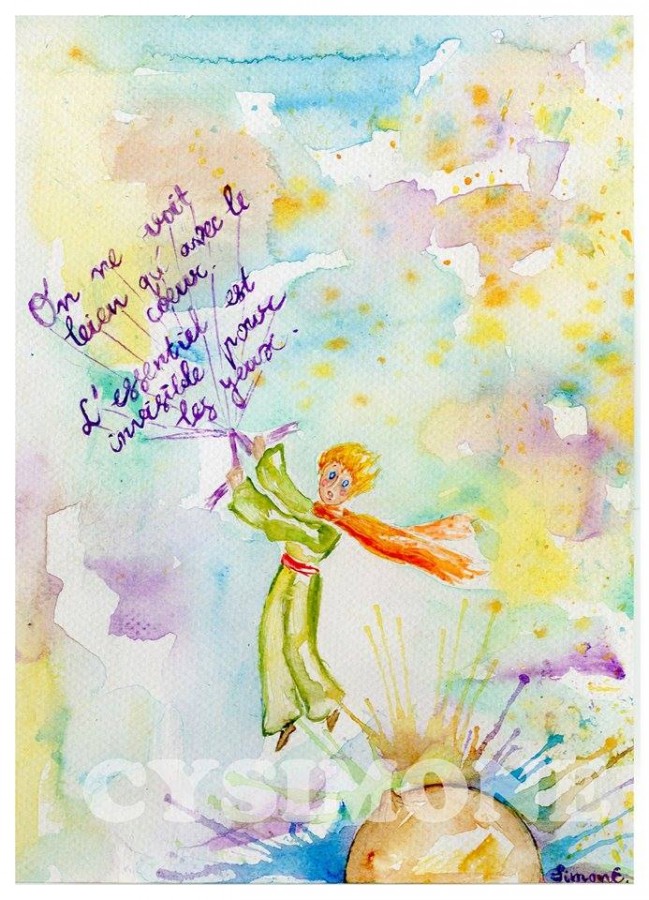 On ne voit
bien qu'avec le
coeur.
L'essentiel est
invisible pour
les yeux.
CYSIMONE
Simone.